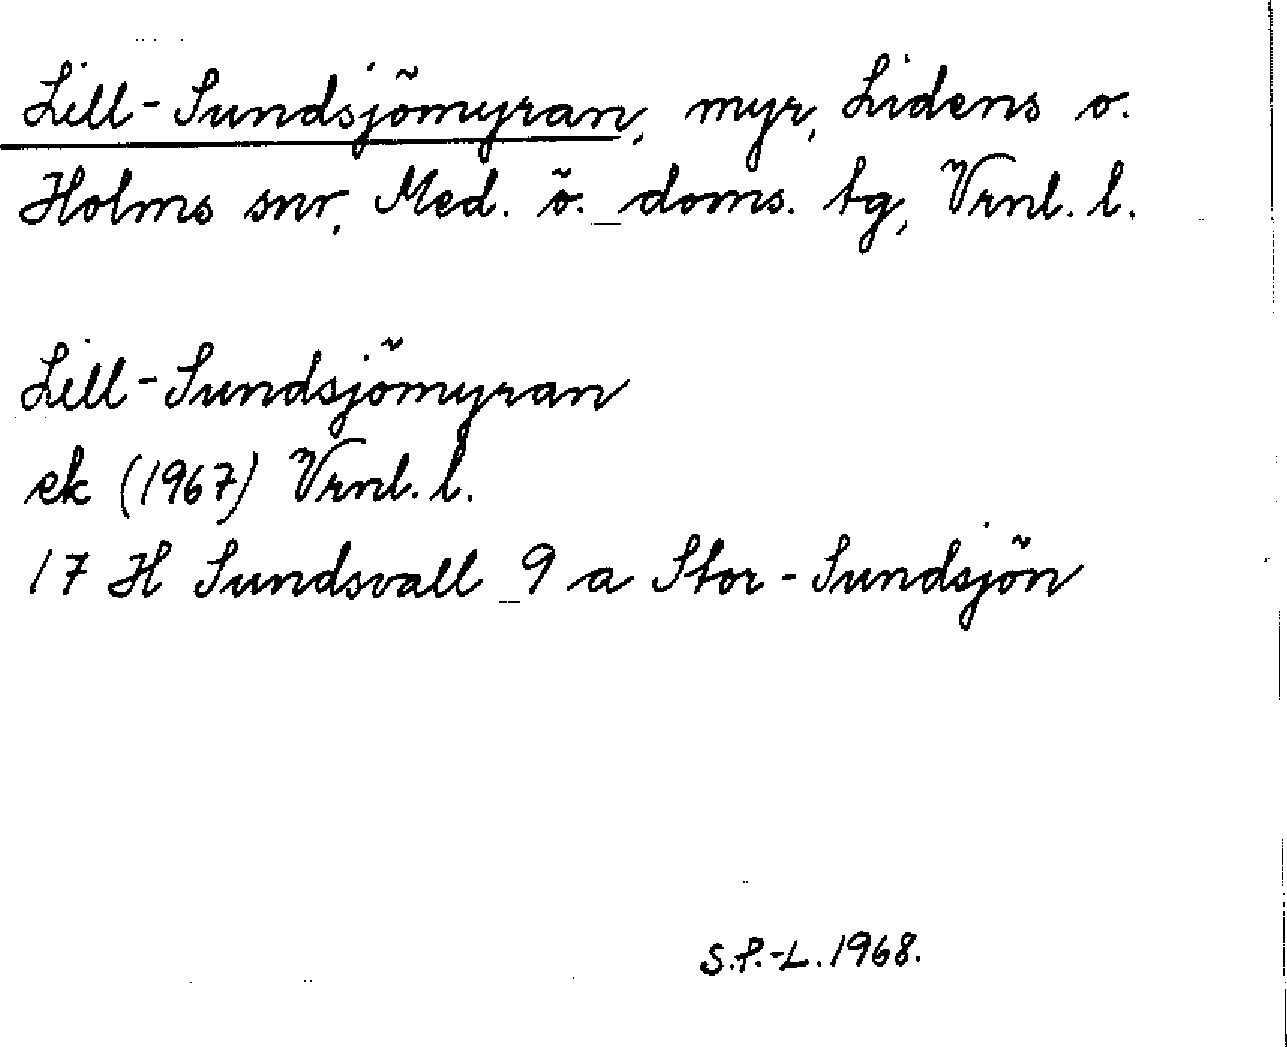 Lill-Sundsjömyran, myr, Lidens o.
Holms snr, Med. ö. doms. tg, Vrnl. l.
Lill-Sundsjömyran
ek (1967) Vrnl. l.
17 H Sundsvall 9 a Stor-Sundsjön
S.P.-L. 1968.